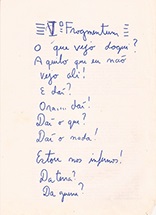 V° Fragmentum
O que vejo daqui?
Aquilo que eu não
vejo ali!
E daí?
Ora,... daí!
Daí o que?
Daí o nada!
Estou nos infernos!
Da terra?
Da guerra?